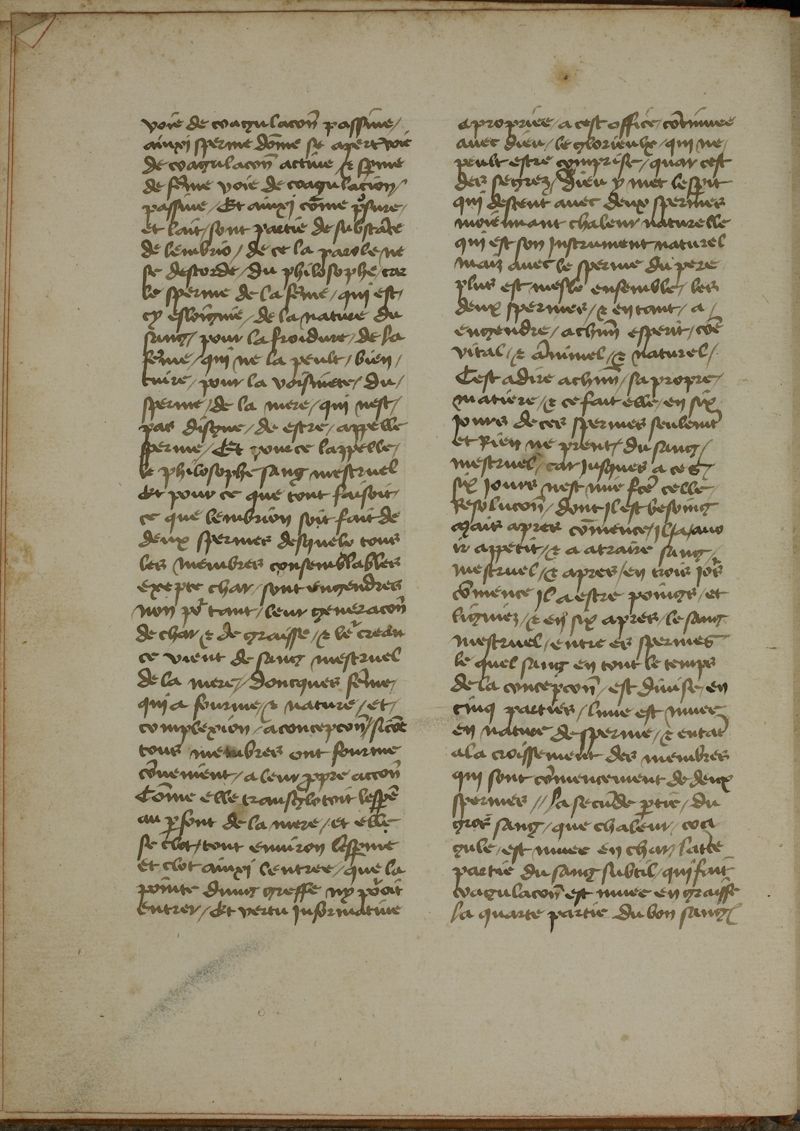 voie de coagulacoñ passiue /
ainxi sperme dōme se apert voie
de coagulacon actiue / & sp̄me
de fēme voie de coagulacion /
passiue / Et ainxi cōme p̄sure /
et lait / sont partie de substāce
de lembrio / de ce la parole ne
se destorde / du philosophe / car
le sperme de la fēme / qui est /
cy esloignie / de la nature du
sang / pour la froidure / de la
fēme / qui ne la peult / bien /
cuire / pour la voisinete / du /
sperme / de la mere / qui nest /
pas digne / de estre / appelle
sperme / Et pour ce lappelle /
le philosophe sang mestruel
Et pour ce que tout faisoit /
ce que lembrion soit fait de
deux spermes desquelx tous
les membres consemblables
exepte char / sont engendres
non p̄ tant / leur generacoñ
de char & de graisse / & le᷑ creau
ce vient de sang mestruel
de la mere / doncques fēme /
qui a fourme / & nature / et /
complexion / a concepcoñ / sicōe
tous membres ont fourme
cōuenient / a leur p̄pre accoñ
Cōme elle lesp̄e
au p̄font de la mere / et elle
se clot / tout environ lesperme
et clot ainxi lentree / que la
pointe dung greffe ny po᷑oit
entrer / Et vertu informatiue
apropriee / a cest office / cōtinuee
auec dieu / le glorieulx / qui ne /
peult estre comprese / quar cest
des segrez / Dieu y met lespit
qui destent auec deux spermes
moiennant chaleur naturelle
qui est son instrument naturel
maiz auec le sperme du pere
plus est mesle ensemble / les
deux spermes / & en tant / a /
engendre / a chūn esperit / cōe
vital / & animel / & naturel /
Cest a dire a chūn / sa propre /
matiere / & ce fait elle / en six
jours de ces spermes seulemt̄
et Rien ne prent / du sang /
mestruel / car jusques a ces
six jours nest mie fc̄e celle /
Resolucoñ / dont il est besoing
Mais apres cōmence il a auo
ir appetit / & a atraire sang /
mestruel / & apres / en trois jo᷑s
cōmence il a estre poings / et
ligniez / & en six apres / le sang
mestruel / entre es spermes
le quel sang en tout le temps
de la concepcoñ / est diuise / en
cinq parties / lune est muee
en nature de sperme / & entāt
a la croissement des membres
qui sont cōmencement de deux
spermes // La secūde p̄tie / du
gros sang / que chaleur / coa
gule / est muee en char / lautre
partie du sang subtil / qui fait
coagulacoñ est muee en graisse
la quarte partie du bon sang /